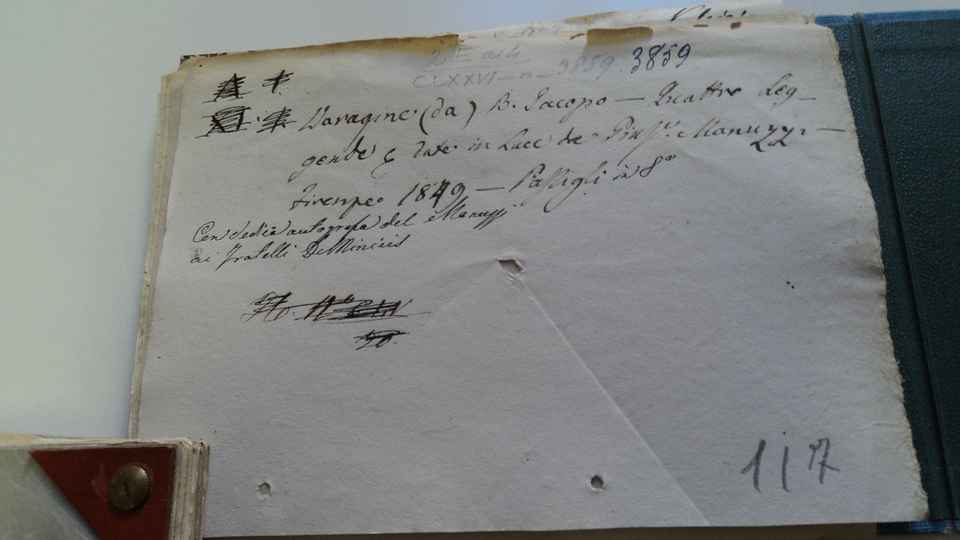 CLXXVI - n. 3859. 3859
Varagine (da) B. Jacopo — Quattro Leg-
gende &c Date in Luce da Gius.e Manuzzi —
Firenze 1849 — Passigli in 8°
Con dedica autografa del Manuzzi
ai Fratelli DeMinicis
117